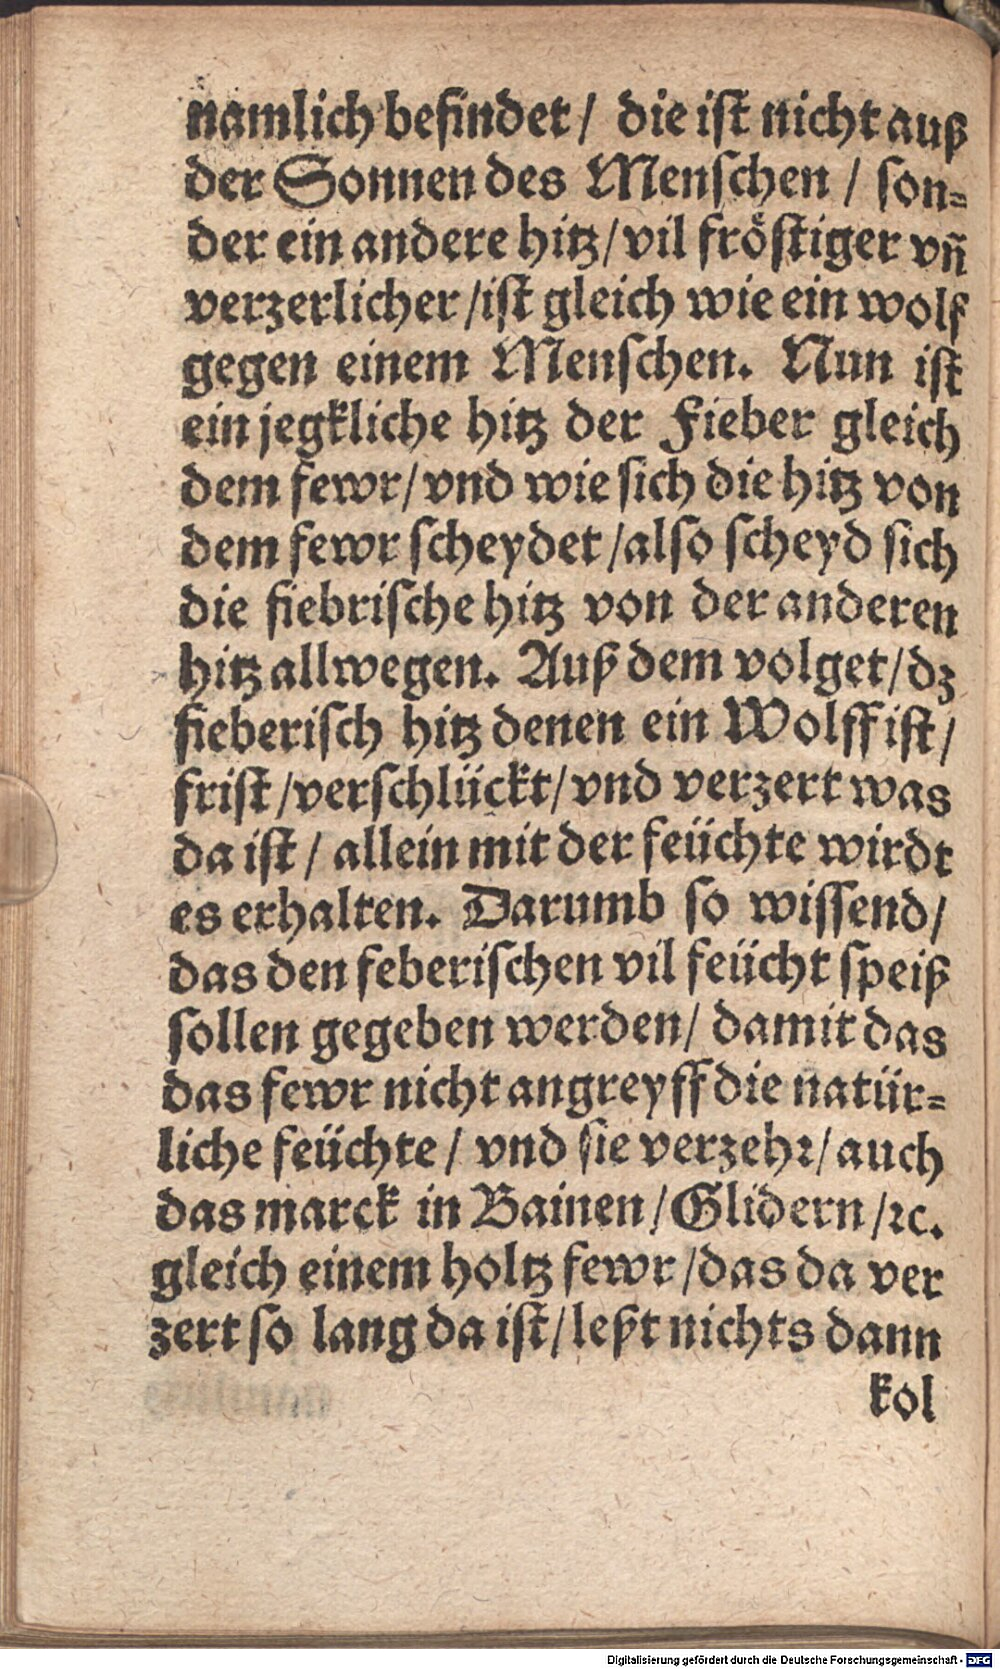 namlich befindet / die ist nicht auß
der Sonnen des Menschen / son-
der ein andere hitz / vil fröstiger vñ
verzerlicher / ist gleich wie ein wolf
gegen einem Menschen. Nun ist
ein jegkliche hitz der Fieber gleich
dem fewr / vnd wie sich die hitz von
dem fewr scheydet / also scheyd sich
die fiebrische hitz von der anderen
hitz allwegen. Auß dem volget / dz
fieberisch hitz denen ein Wolff ist /
frist / verschlückt / vnd verzert was
da ist / allein mit der feüchte wirdt
es erhalten. Darumb so wissend /
das den feberischen vil feücht speiß
sollen gegeben werden / damit das
das fewr nicht angreyff die natür-
liche feüchte / vnd sie verzehr / auch
das marck in Bainen / Glidern / ꝛc.
gleich einem holtz fewr / das da ver
zert so lang da ist / leßt nichts dann
kol
Digitalisierung gefördert durch die Deutsche Forschungsgemeinschaft - DFG